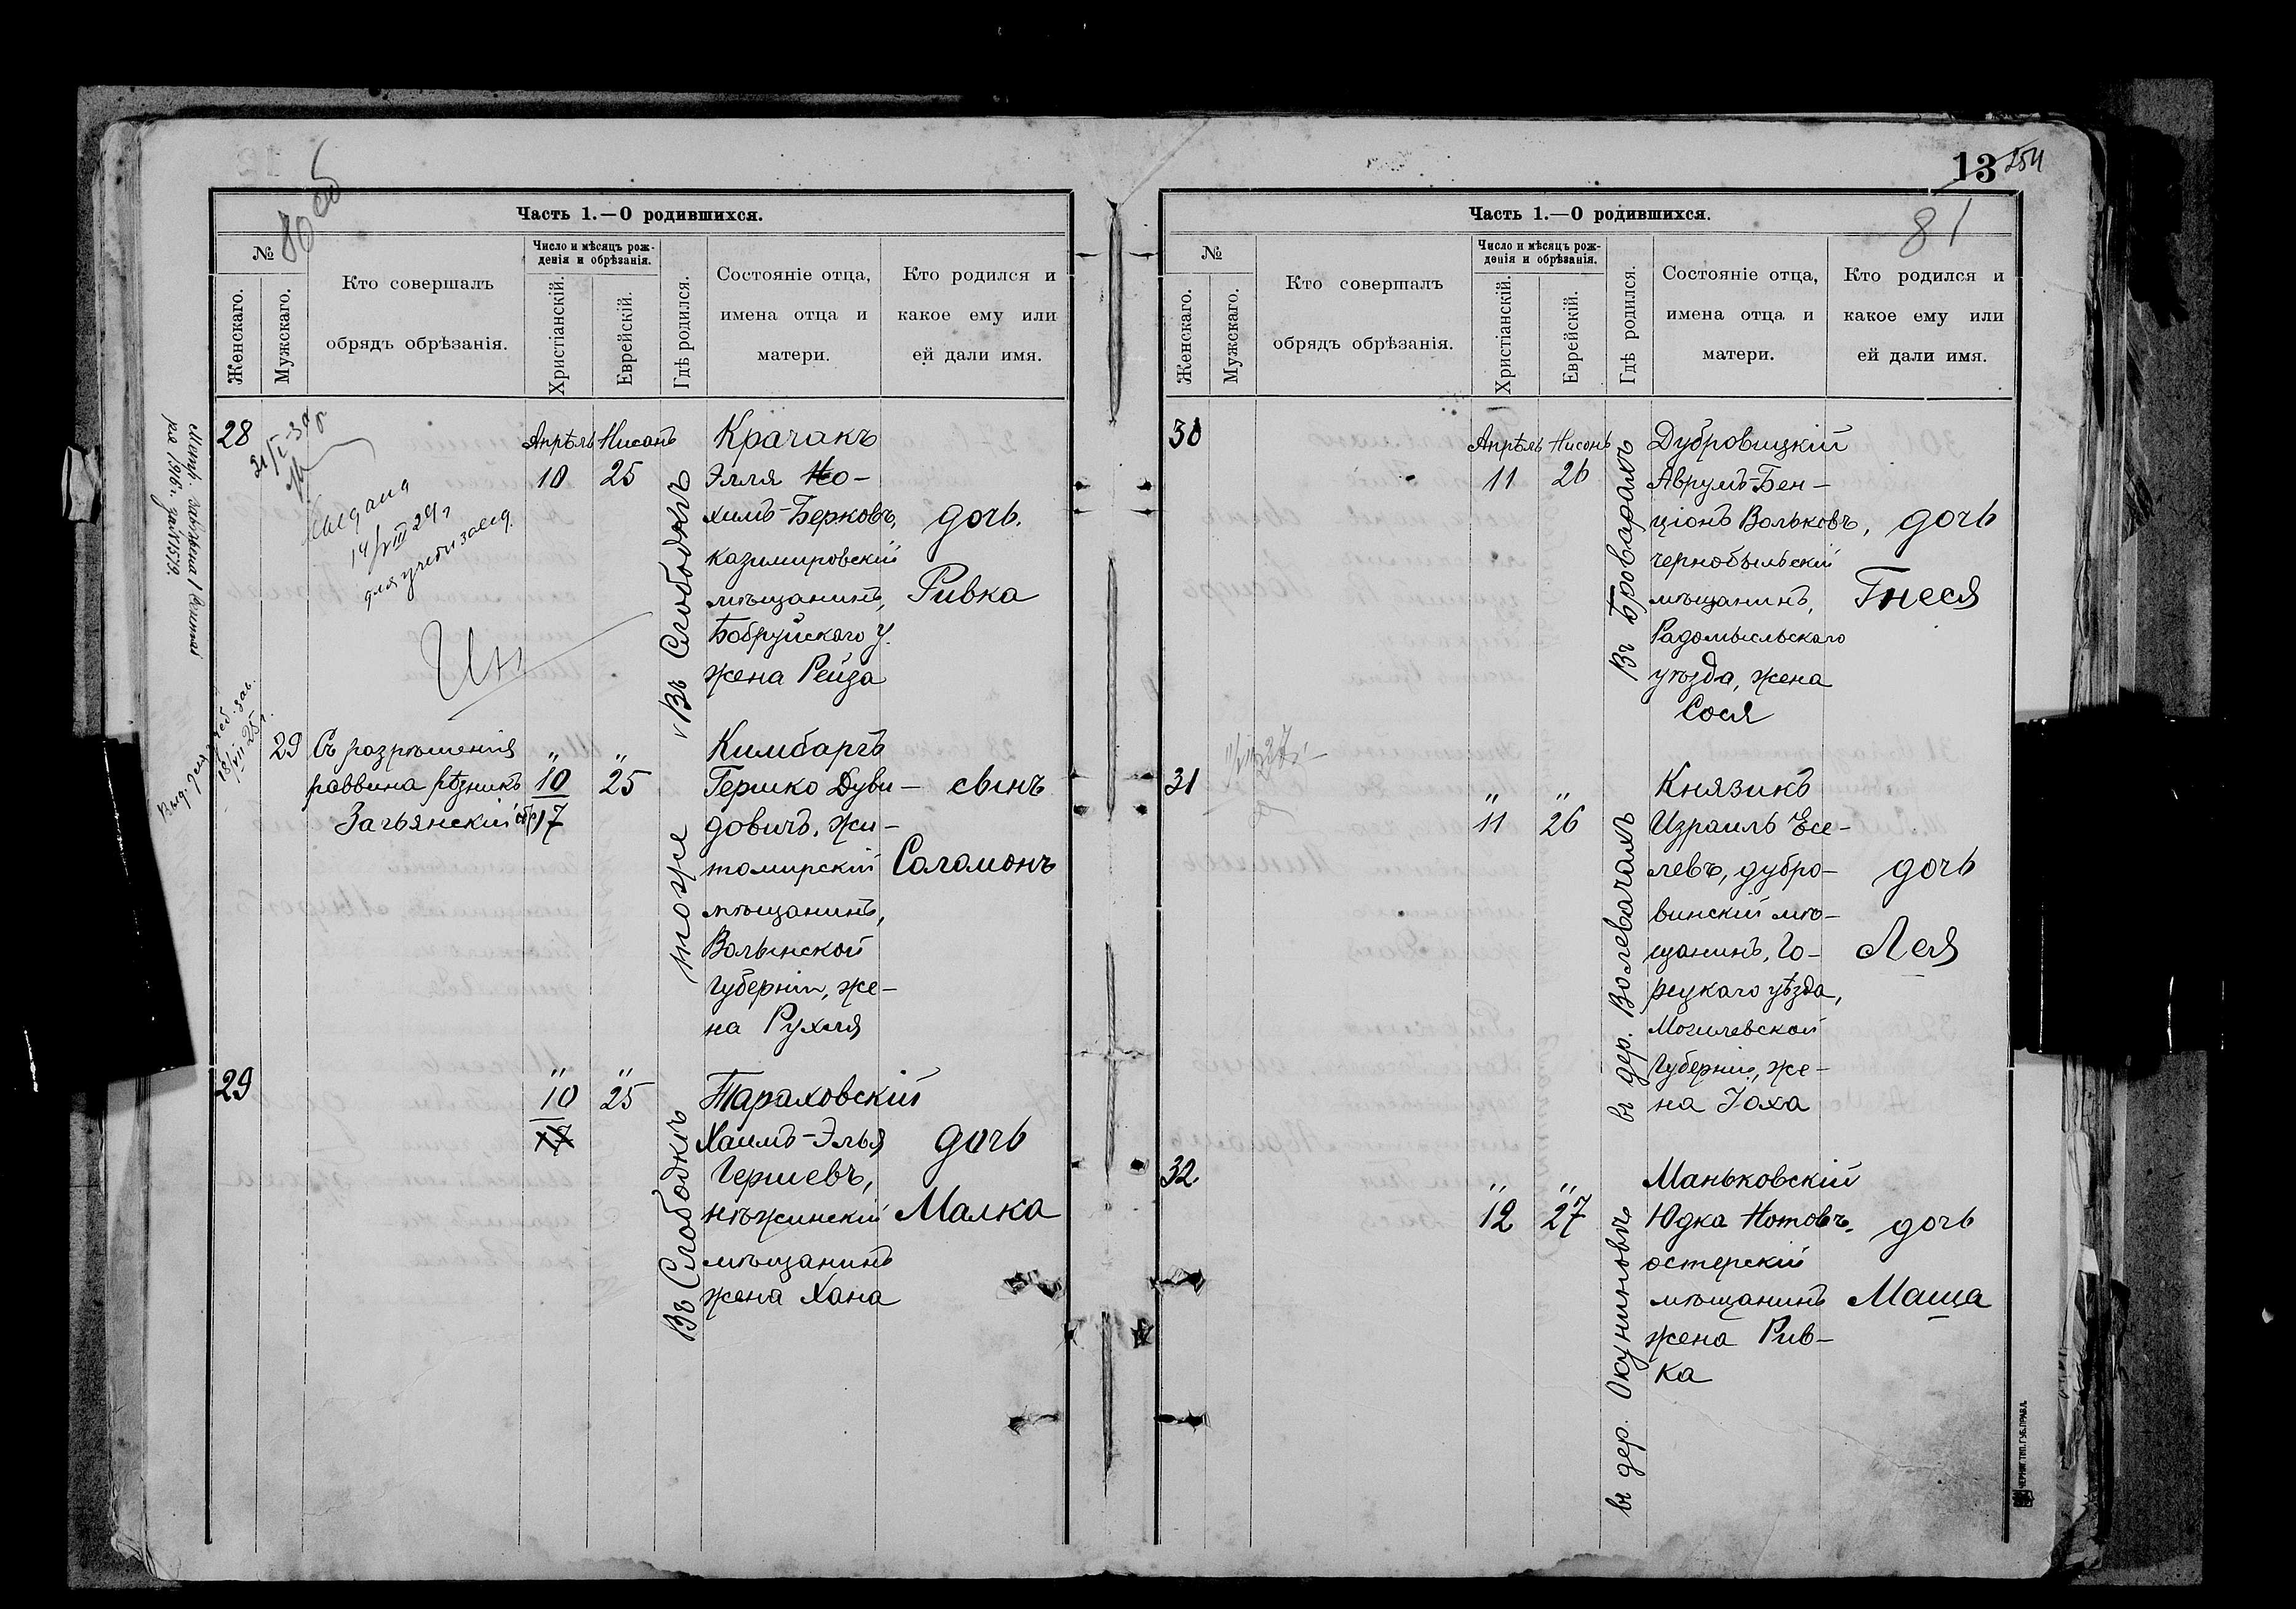 80 об
Часть 1.—О родившихся.
№
Женскаго.
Мужскаго.
Кто совершалъ
обрядъ обрѣзанія.
Число и мѣсяцъ рож-
денія и обрѣзанія.
Христіанскій.
Еврейскій.
Гдѣ родился.
Состояніе отца,
имена отца и
матери.
Кто родился и
какое ему или
ей дали имя.
28
21/I-39 г
14/VIII 29 г
Апрѣль Нисанъ
10 25
Въ Слободкѣ
Крачакъ
Элля Но-
химъ-Берковъ,
казимировскій
мѣщанинъ,
Бобруйскаго у.
жена Рейза
дочь.
Ривка
18/VII 25 г.
29
Съ разрѣшенія
раввина рѣзникъ
Загьянскій
" "
10 25
17
тоже
Кимбаргъ
Гершко Дуви-
довичъ, жи-
томирскій
мѣщанинъ,
Волынской
губерніи, же-
на Рухля
сынъ
Соломонъ
29
" "
10 25
Въ Слободкѣ
Тараховскій
Хаимъ-Элья
Гершевъ,
нѣжинскій
мѣщанинъ
жена Хана
дочь
Малка
13
81
Часть 1.—О родившихся.
№
Женскаго.
Мужскаго.
Кто совершалъ
обрядъ обрѣзанія.
Число и мѣсяцъ рож-
денія и обрѣзанія.
Христіанскій.
Еврейскій.
Гдѣ родился.
Состояніе отца,
имена отца и
матери.
Кто родился и
какое ему или
ей дали имя.
30
Апрѣль Нисонъ
11 26
Въ Броварахъ
Дубровицкій
Аврумъ-Бен-
ціонъ Вольковъ,
чернобыльскій
мѣщанинъ,
Радомысльскаго
уѣзда, жена
Сося
дочь
Гнеся
31
" "
11 26
въ дер. Волевачахъ
Князикъ
Израиль Есе-
левъ, дубро-
винскій мѣ-
щанинъ, Го-
рецкаго уѣзда,
Могилевской
губерніи, же-
на Іоха
дочь
Лея
32.
" "
12 27
въ дер. Окуниновѣ
Маньковскій
Юдка Нотовъ,
остерскій
мѣщанинъ
жена Рив-
ка
дочь
Маша
ЧЕРНИГ. ТИП. ГУБ. ПРАВЛ.